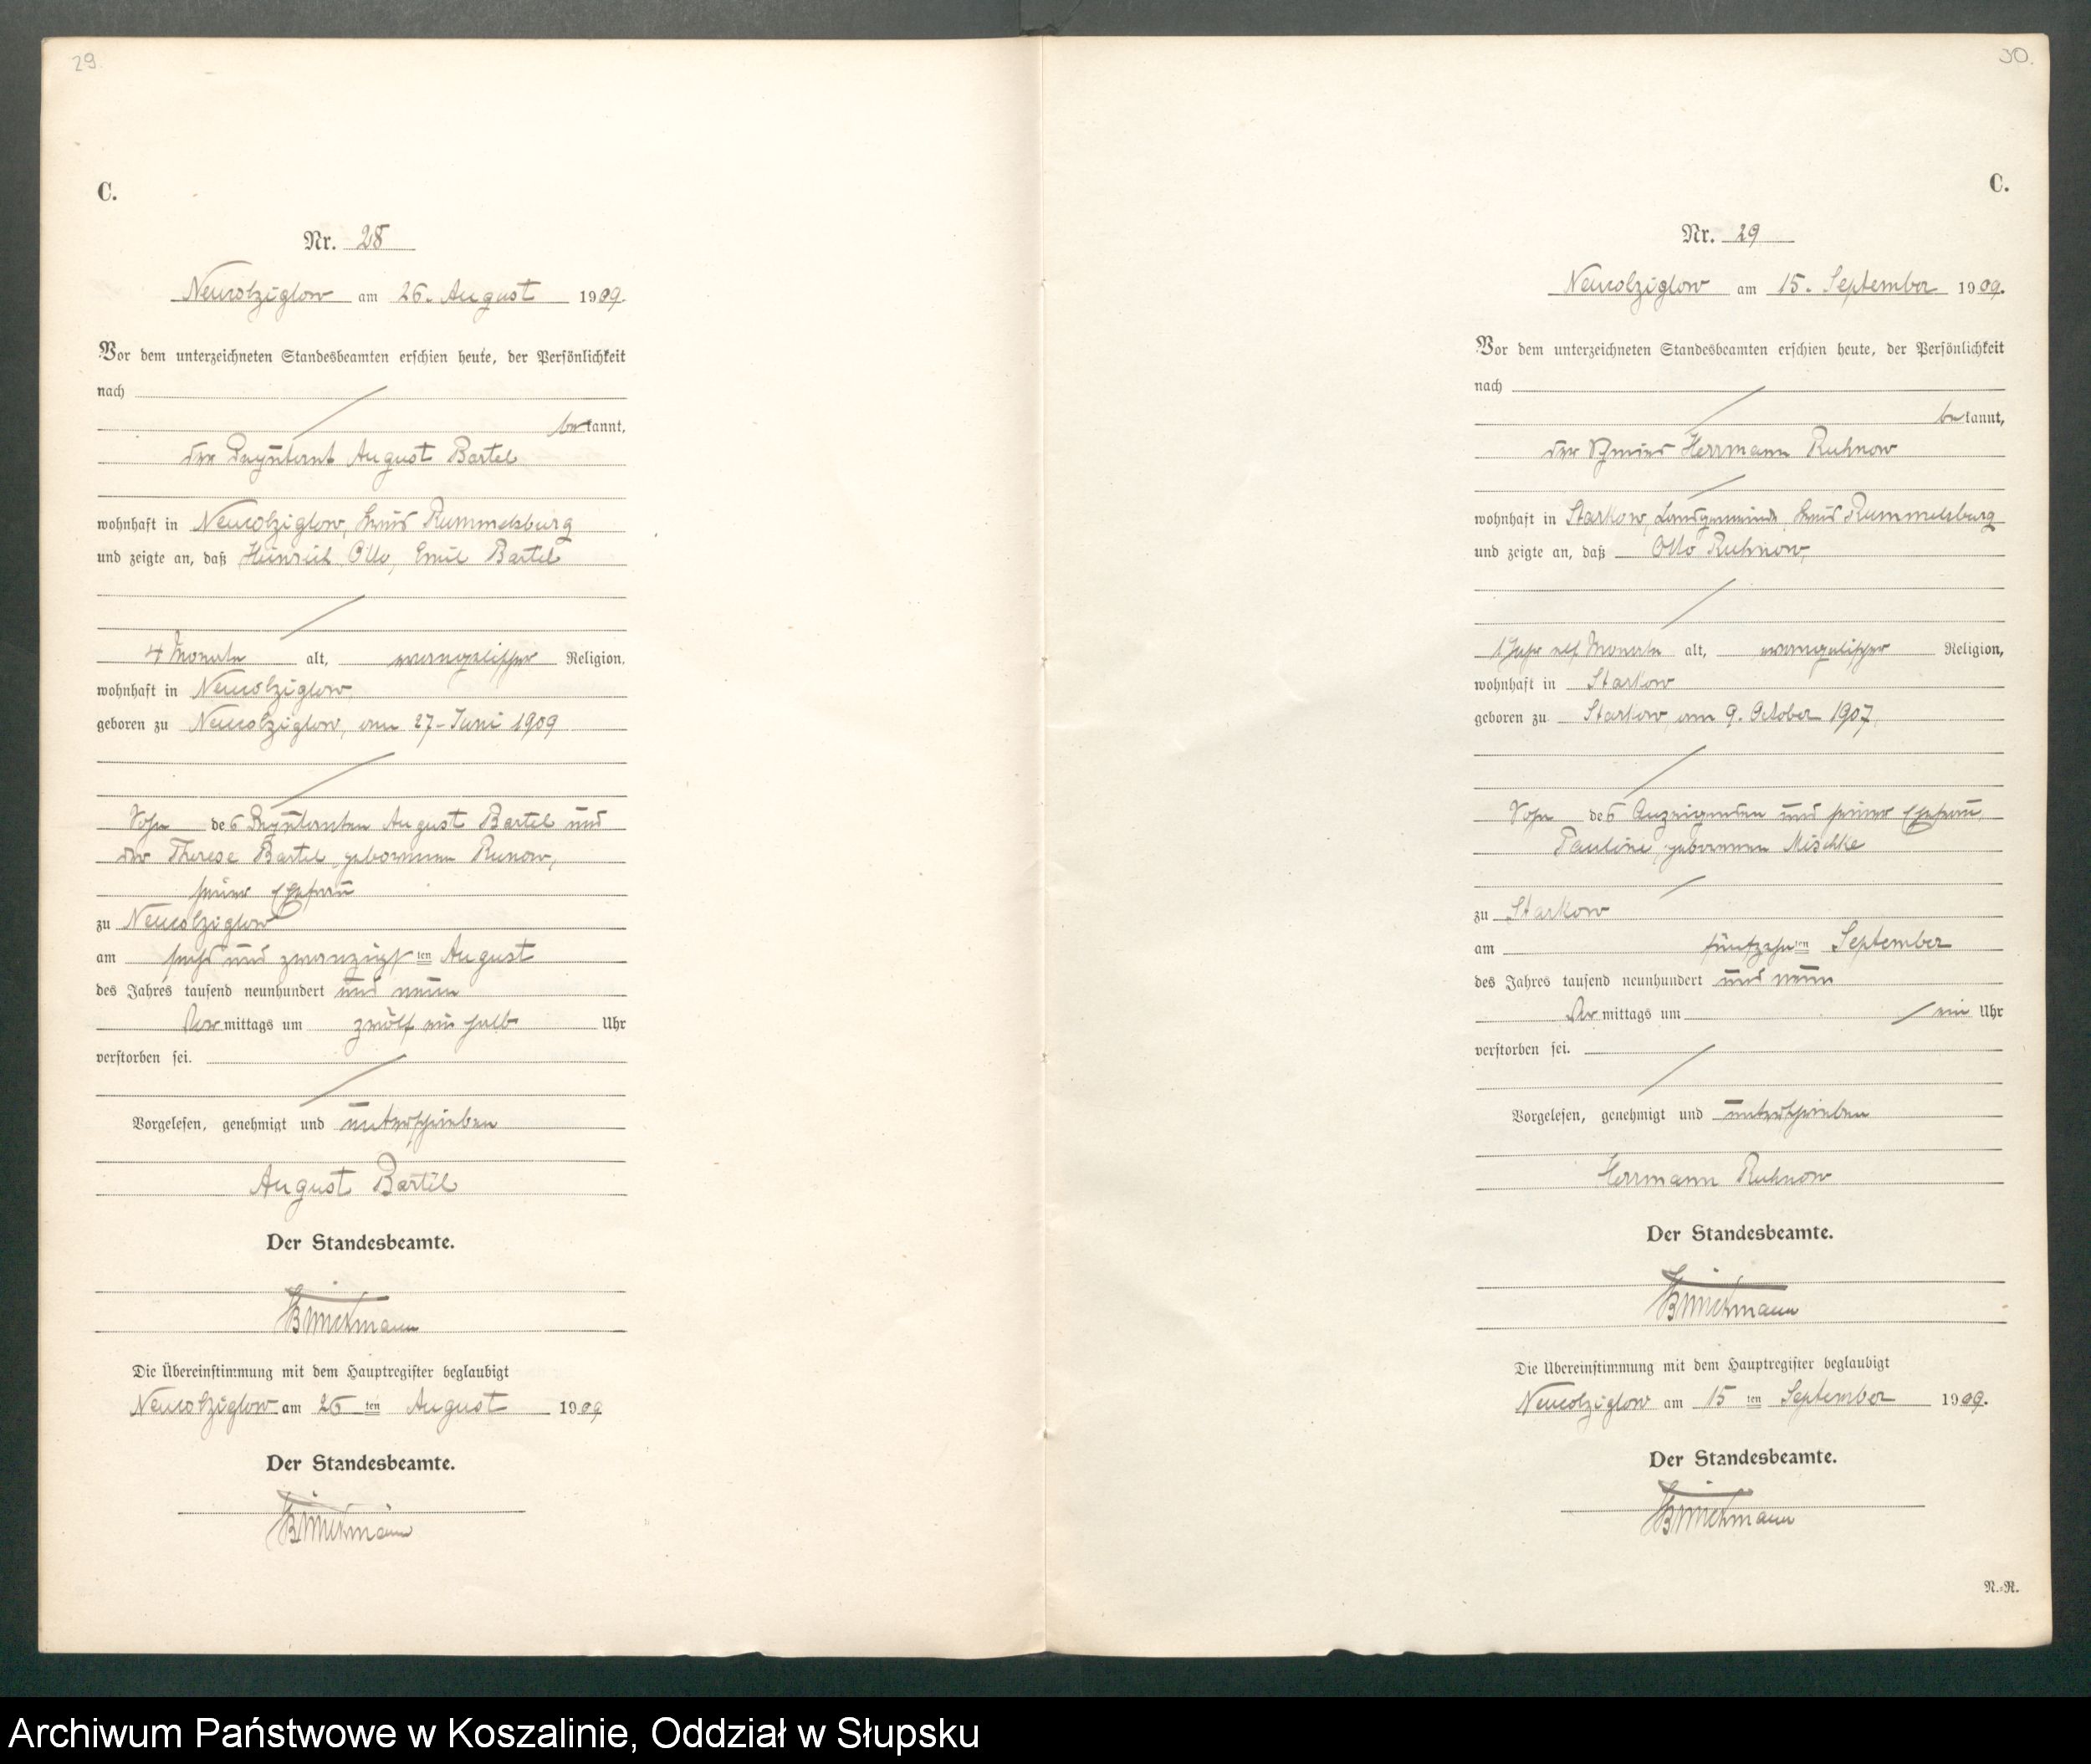 29.
C.
Nr. 28
Neucolziglow am 26. August 1909.
Vor dem unterzeichneten Standesbeamten erschien heute, der Persönlichkeit
nach
bekannt,
der Deputant August Bartel
wohnhaft in Neucolziglow, Kreis Rummelsburg
und zeigte an, daß Heinrich, Otto, Emil Bartel
4 Monate alt, evangelischer Religion,
wohnhaft in Neucolziglow,
geboren zu Neucolziglow, am 27. Juni 1909
Sohn des Deputanten August Bartel und
der Therese Bartel, geborenen Runow,
seiner Ehefrau
zu Neucolziglow
am sechs und zwanzigsten August
des Jahres tausend neunhundert und neun
Vormittags um zwölf ein halb Uhr
verstorben sei.
Vorgelesen, genehmigt und unterschrieben
August Bartel
Der Standesbeamte.
Die Übereinstimmung mit dem Hauptregister beglaubigt
Neucolziglow am 26 ten August 1909
Der Standesbeamte.
30.
C.
Nr. 29
Neucolziglow am 15. September 1909.
Vor dem unterzeichneten Standesbeamten erschien heute, der Persönlichkeit
nach
bekannt,
der Schmied Herrmann Ruhnow
wohnhaft in Starkow, Landgemeinde, Kreis Rummelsburg
und zeigte an, daß Otto Ruhnow,
1 Jahr elf Monate alt, evangelischer Religion,
wohnhaft in Starkow
geboren zu Starkow, am 9. October 1907,
Sohn des Anzeigenden und seiner Ehefrau
Pauline, geborenen Mischke
zu Starkow
am fünfzehnten September
des Jahres tausend neunhundert und neun
Vormittags um ein Uhr
verstorben sei.
Vorgelesen, genehmigt und unterschrieben
Herrmann Ruhnow
Der Standesbeamte.
Die Übereinstimmung mit dem Hauptregister beglaubigt
Neucolziglow am 15 ten September 1909.
Der Standesbeamte.
N.-R.
Archiwum Państwowe w Koszalinie, Oddział w Słupsku